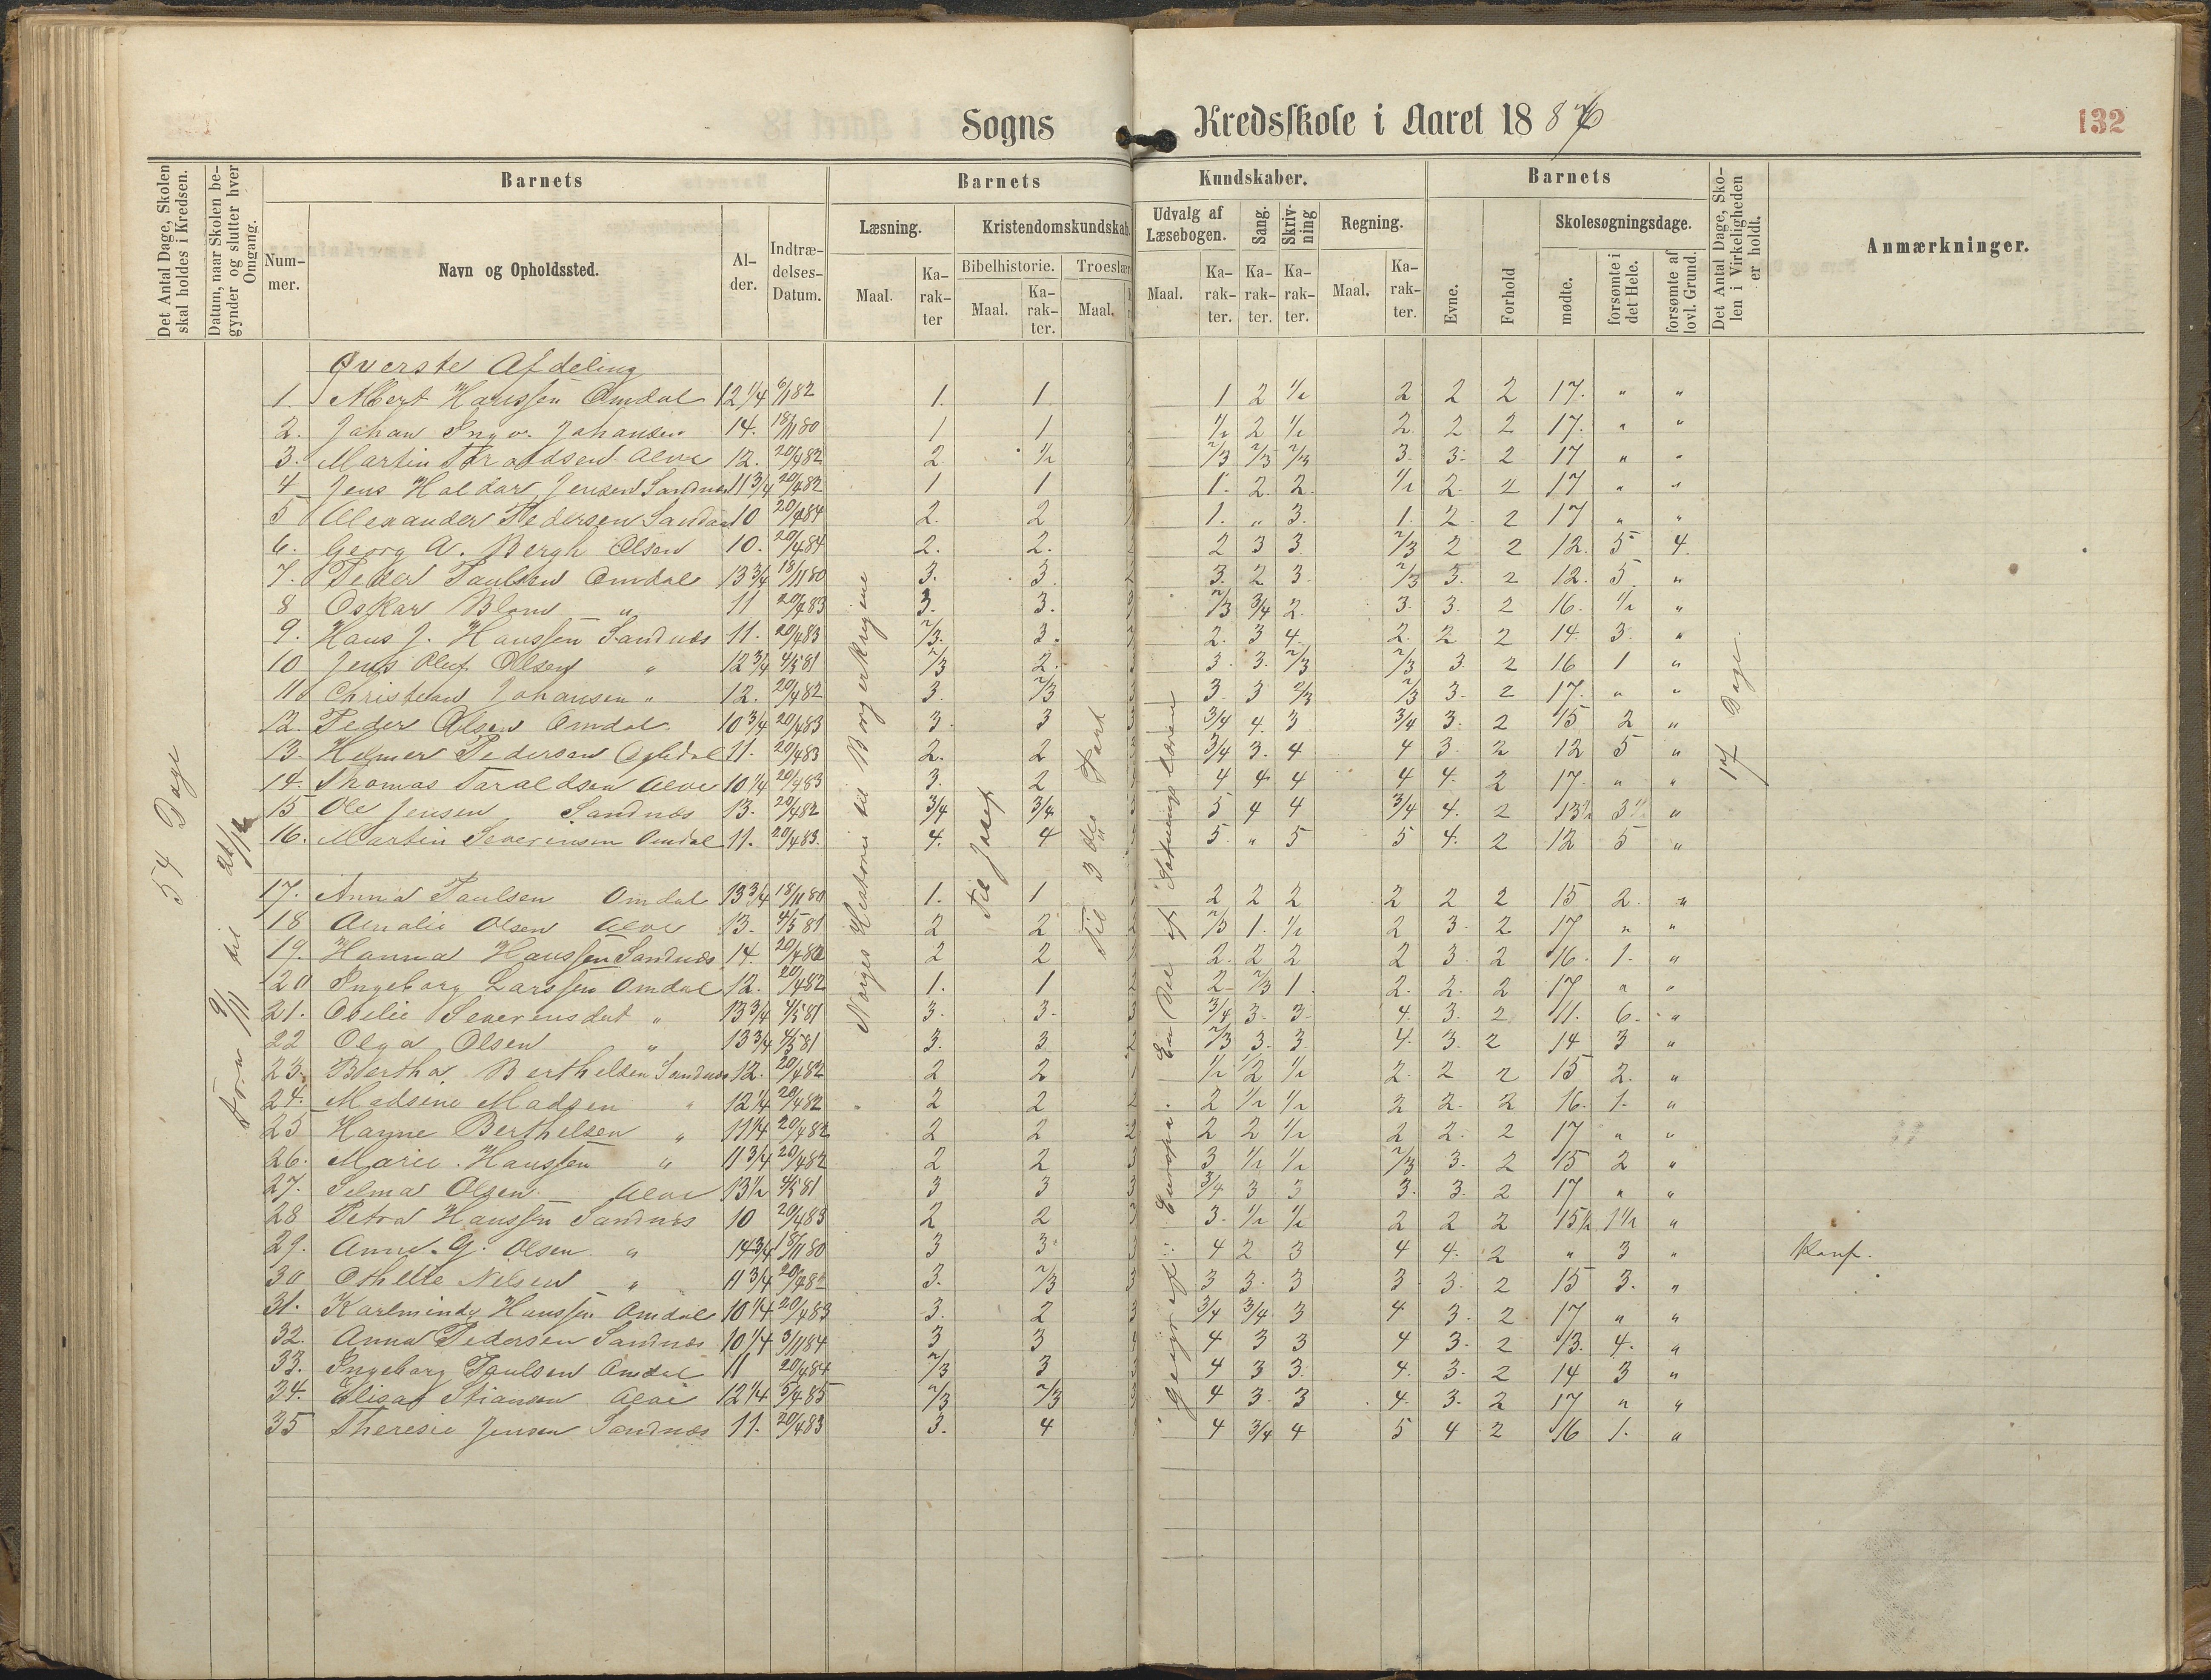 Sogns Kredsskole i Aaret 1886
132
Det Antal Dage, Skolen skal holdes i Kredsen.
Datum, naar Skolen begynder og slutter hver Omgang.
Barnets
Nummer.
Navn og Opholdssted.
Alder.
Indtrædelses-Datum.
Barnets Kundskaber.
Læsning.
Maal.
Karakter
Kristendomskundskab.
Bibelhistorie.
Maal.
Karakter.
Troeslær
Maal.
Udvalg af Læsebogen.
Maal.
Karakter.
Sang.
Karakter.
Skrivning
Karakter.
Regning.
Maal.
Karakter.
Barnets
Evne.
Forhold
Skolesøgningsdage.
mødte.
forsømte i det Hele.
forsømte af lovl. Grund.
Det Antal Dage, Skolen i Virkeligheden er holdt.
Anmærkninger.
54 Dage
Norges Historie til Borgerkrigene
Til Josef
Til 3die Part
17 Dage.
Øverste Afdeling
1. Albert Hanssen Omdal 12 1/4 6/11 82 1. 1. 1 2 1/2 2 2 2 17. " "
2. Johan Ingv. Johansen 14. 18/11 80 1 1 1/2 2 1/2 2. 2 2 17. " "
3. Martin Taraldsen Alve 12. 20/4 82 2 1/2 2/3 2/3 2/3 3. 3. 2 17 " "
4 Jens Haldor Jensen Sandnes 11 3/4 20/4 82 1 1 1. 2. 2. 1/2 2. 2 17 " "
5 Alexander Pedersen Sandnes 10 20/4 84 2. 2 1. " 3. 1. 2 2 17 " "
6. Georg A. Bergh Olsen 10. 20/4 84 2. 2. 2 3 3 2/3 2 2 12. 5 4.
7. Peder Paulsen Omdal 13 3/4 18/11 80 3. 3. 3. 2 3. 2/3 3. 2 12. 5 "
8 Oskar Blom " 11 20/4 83 3. 3. 2/3 3/4 2. 3. 3. 2 16. 1/2 "
9. Hans J. Hanssen Sandnes 11. 20/4 83 2/3. 3. 2. 3 4. 2. 2 2 14. 3. "
10 Jens Oluf Olsen " 12 3/4 4/5 81 2/3 2. 3. 3. 2/3 2/3 3 2 16 1 "
11 Christian Johansen " 12. 20/4 82 3. 2/3 3. 3 2/3 2/3 3. 2 17. " "
12. Peder Olsen Omdal 10 3/4 20/4 83 3. 3 3/4 4. 3 3/4 3. 2 15 2 "
13. Helmer Pedersen 11. 20/4 83 2. 2 3/4 3. 4 4 3. 2 12 5 "
14. Thomas Taraldsen Alve 10 1/4 20/4 83 3. 2 4 4 4 4 4. 2 17. " "
15 Ole Jensen Sandnes 13. 20/4 82 3/4 3/4 5 4 4 3/4 4. 2 13 1/2 3 1/2 "
16. Martin Severinsen Omdal 11. 20/4 83. 4. 4 5 " 5 5 4. 2 12 5 "
17. Anna Paulsen Omdal 13 3/4 18/11 80 1. 1 2 2 2 2 2 2 15 2. "
18 Amalie Olsen Alve 13. 4/5 81 2 2 2/3 1. 1/2 2 3. 2 17 " "
19. Hanna Hanssen Sandnes 14. 20/4 82 2 2 2. 2 2 2 3 2 16. 1. "
20 Ingeborg Larssen Omdal 12. 20/4 82 1. 1 2 2/3 1. 2. 2. 2 17 " "
21. Otilie Severinsdat " 13 3/4 4/5 81 3. 3. 3/4 3. 3. 4. 3. 2 11. 6. "
22 Olga Olsen " 13 3/4 4/5 81 3. 3. 2/3 3. 3. 4. 3. 2 14 3 "
23. Bertha Berthelsen Sandnes 12. 20/4 82 2 2 1/2 1/2 1/2 2. 2 2 15 2. "
24. Madsine Madsen " 12 1/4 20/4 82 2 2 2 1/2 1/2 2 2. 2 16. 1. "
25 Hanne Berthelsen " 11 1/4 20/4 82 2 2 2 2 1/2 2 2. 2 17 " "
26. Marie Hanssen " 11 3/4 20/4 82 2 2 3 1/2 1/2 2/3 3. 2 15 2 "
27. Selma Olsen Alve 13 1/2 4/5 81 3 3 3/4 3 3 3. 3. 2 17 " "
28 Petra Hanssen Sandnes 10 20/4 83 2 2 3. 1/2 1/2 2 2 2 15 1/2 1 1/2 "
29. Anne G. Olsen " 14 3/4 18/11 80 3 3 4 2 3 4 4. 2 " 3 " Konf.
30 Othelie Nilsen " 11 3/4 20/4 82 3. 2/3 3 3. 3 3. 3. 2 15 3. "
31. Karlminde Hanssen Omdal 10 1/4 20/4 83 3. 2 3/4 3/4 3 4 3. 2 17 " "
32. Anna Pedersen Sandnes 10 1/4 3/11 84 3 3 4 3 3 4 3. 2 13. 4. "
33. Ingeborg Paulsen Omdal 11 20/4 84 2/3 3 4 3 3. 4. 3. 2 14 3 "
34. Elisa Stiansen Alve 12 1/4 5/4 85 2/3 2/3 4 3. 3 4. 3. 2 17 " "
35 Theresie Jensen Sandnes 11. 20/4 83 3. 4 4 3/4 4 5 4 2 16 1. "